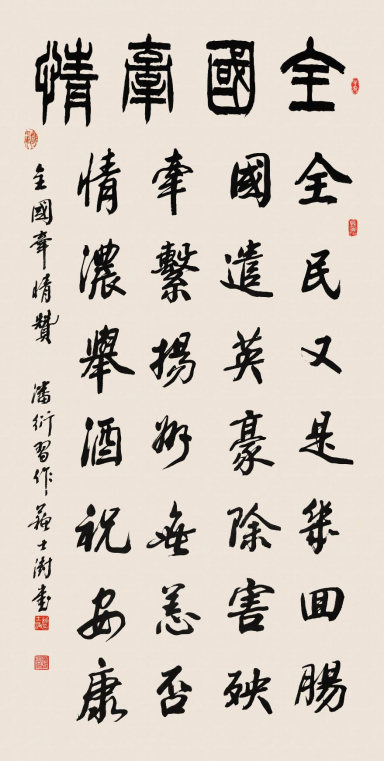 全國牽情
全民又是幾回腸
國遣英豪除害殃
牽繫揚州無恙否
情濃舉酒祝安康
全國牽情贊 潘衍習作 蘇士澍書